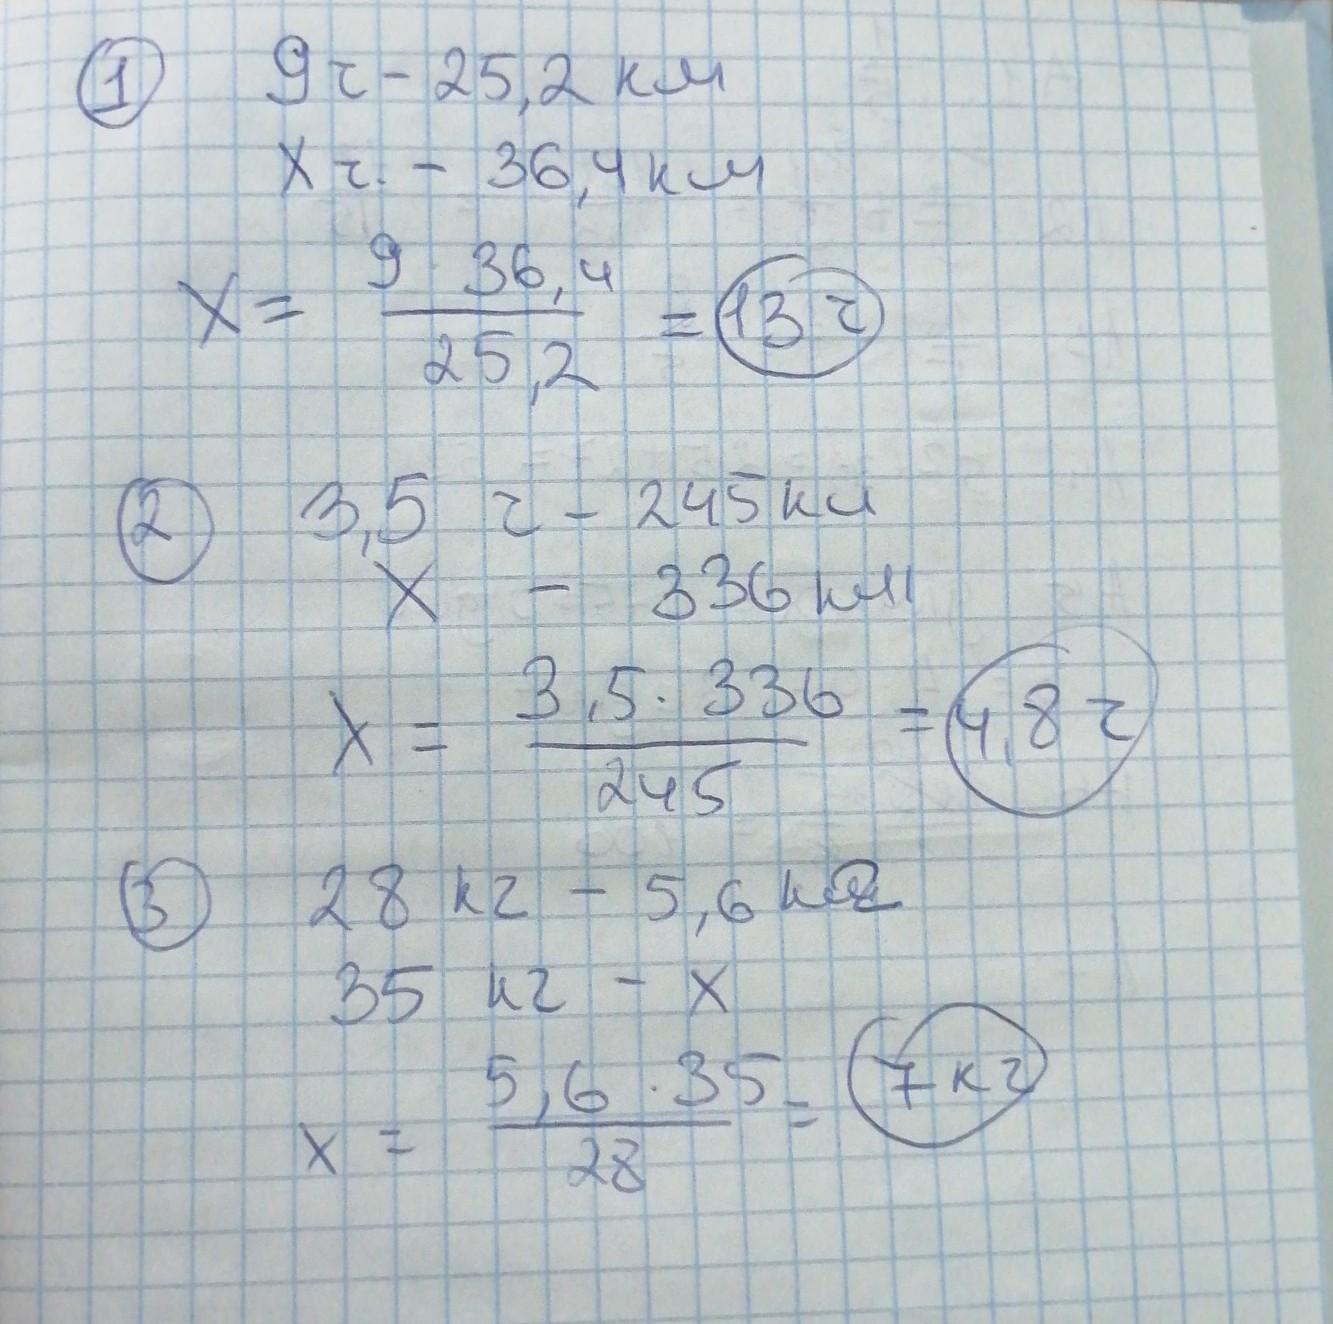 1 9ч - 25,2 км
x ч. - 36,4 км
x = 9 · 36,4 / 25,2 = 13 ч
2 3,5 ч - 245 км
x - 336 км
x = 3,5 · 336 / 245 = 4,8 ч
3 28 кг - 5,6 кг
35 кг - x
x = 5,6 · 35 / 28 = 7 кг